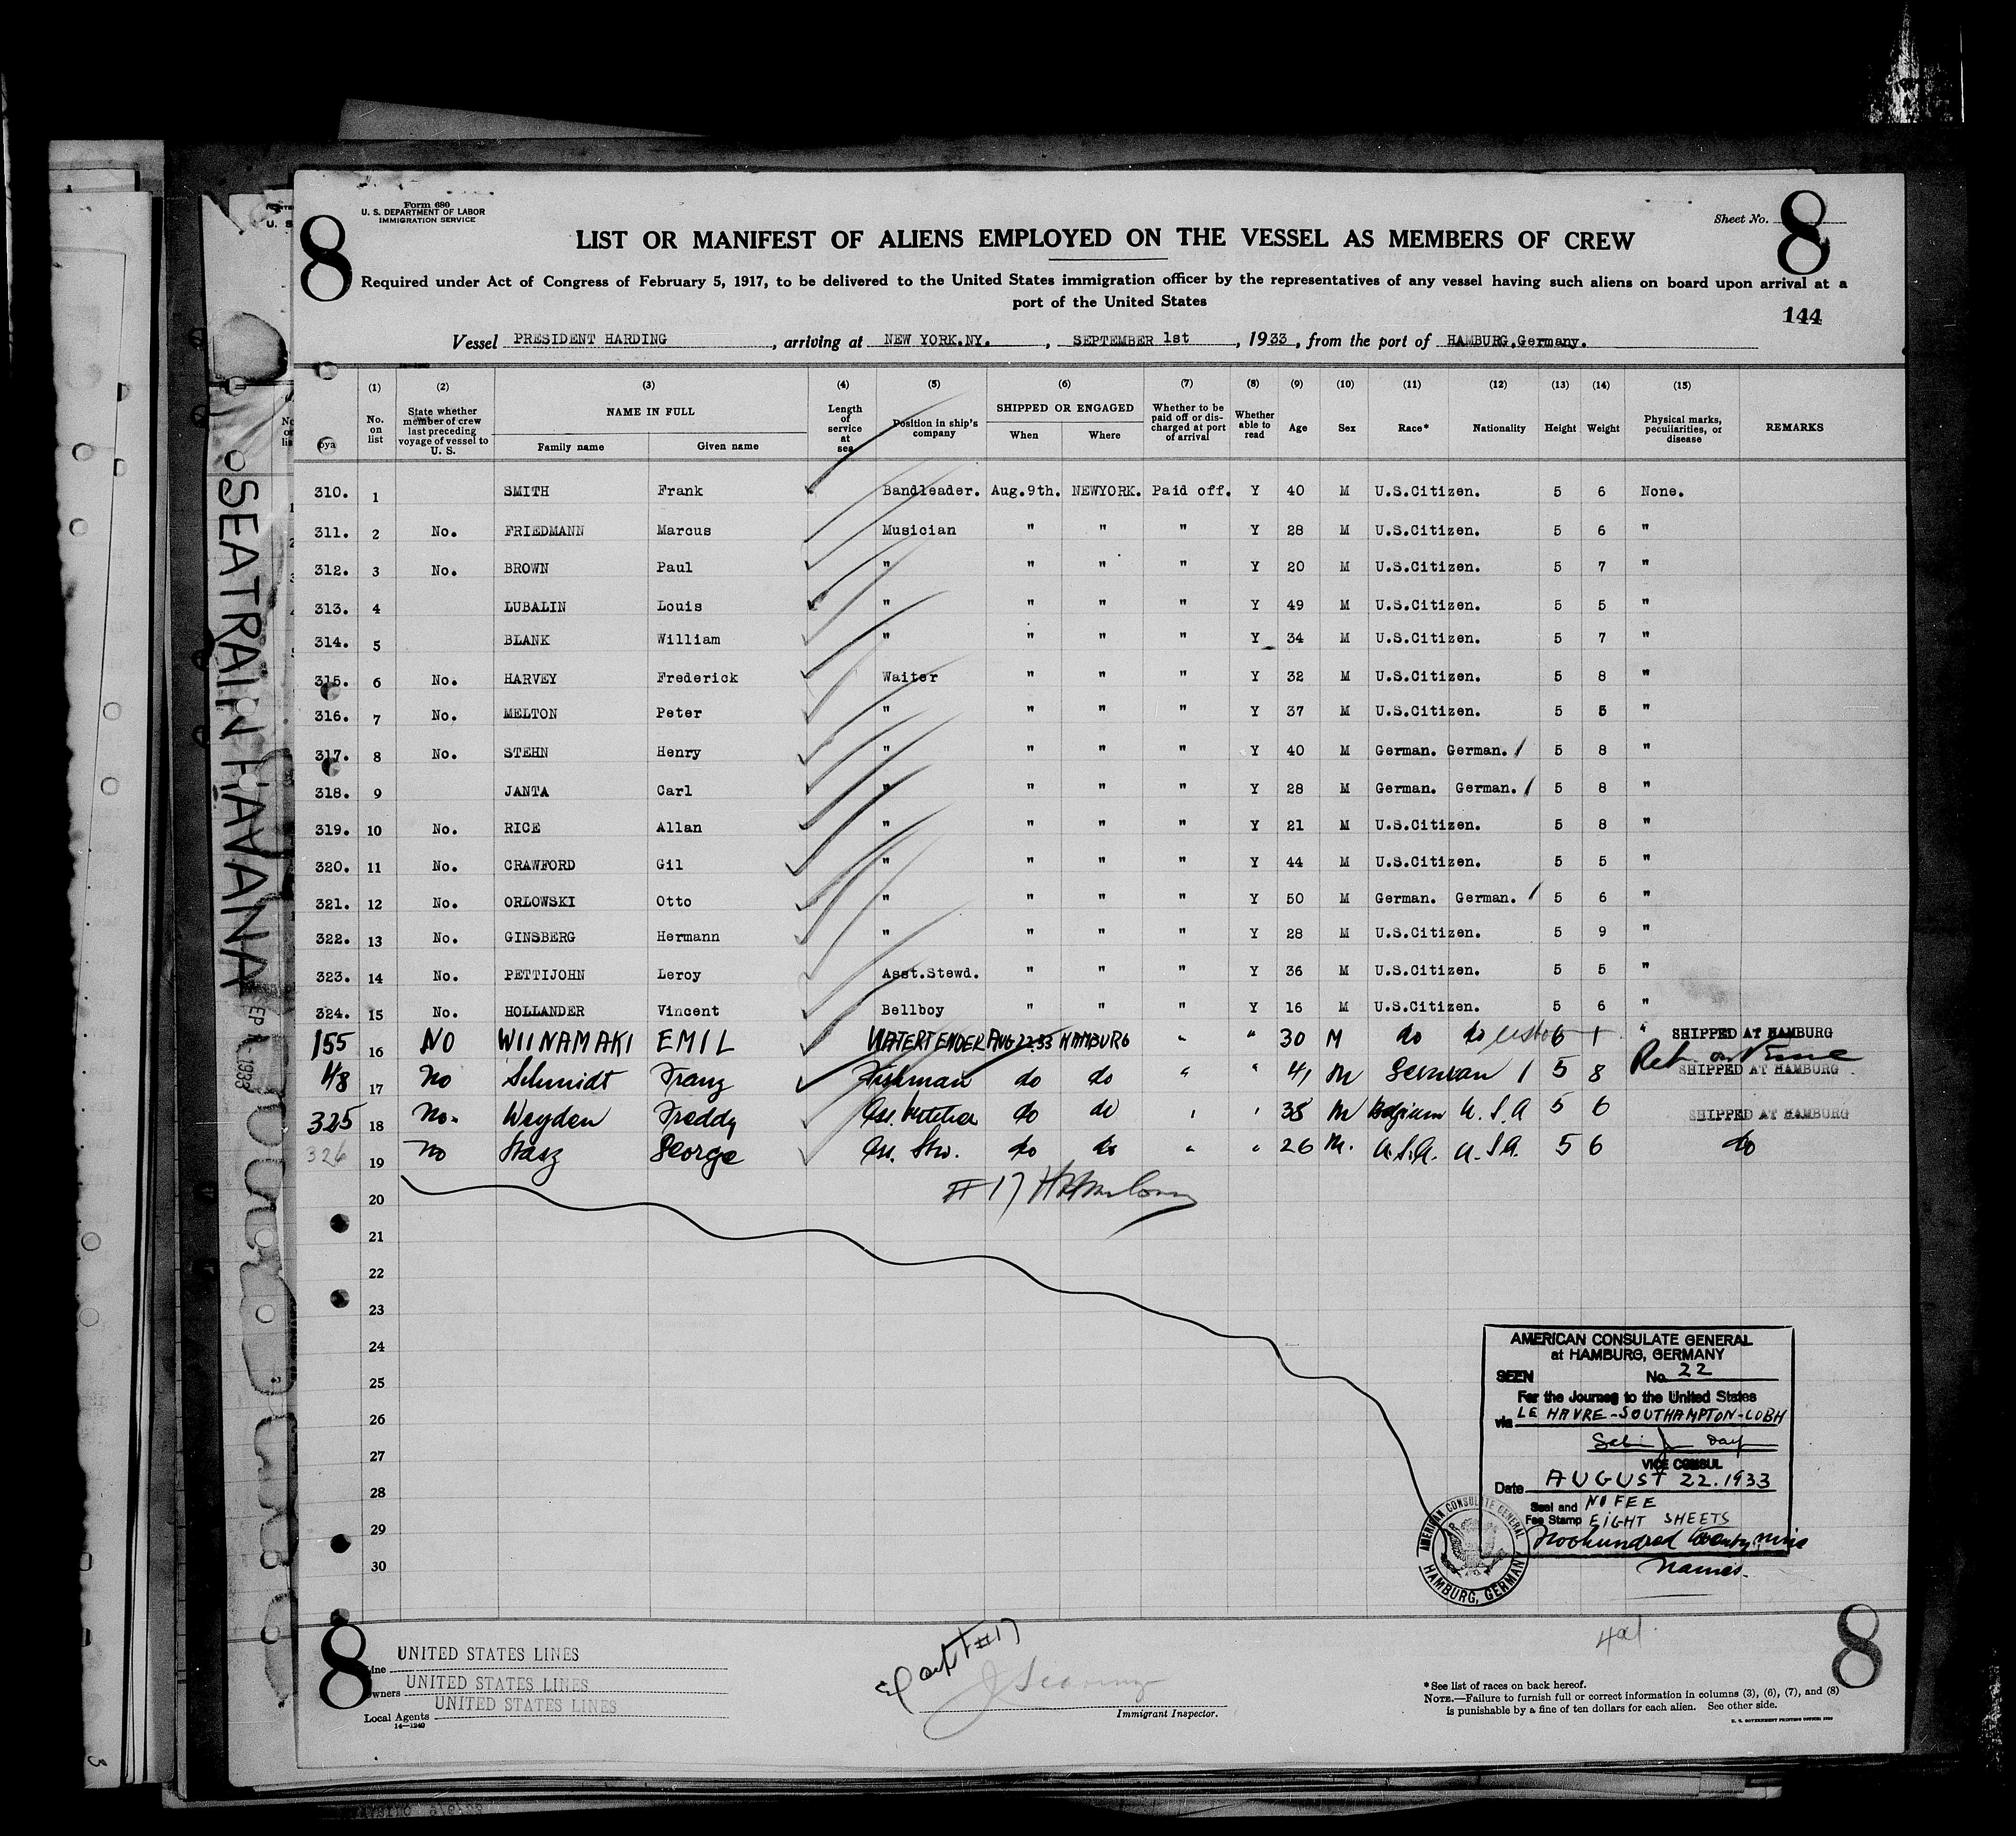 Form 680
U. S. DEPARTMENT OF LABOR
IMMIGRATION SERVICE
8
Sheet No. 8
LIST OR MANIFEST OF ALIENS EMPLOYED ON THE VESSEL AS MEMBERS OF CREW
Required under Act of Congress of February 5, 1917, to be delivered to the United States immigration officer by the representatives of any vessel having such aliens on board upon arrival at a
port of the United States
144
Vessel PRESIDENT HARDING , arriving at NEW YORK.NY. , SEPTEMBER 1st , 1933 , from the port of HAMBURG,Germany.
(1) (2) (3) (4) (5) (6) (7) (8) (9) (10) (11) (12) (13) (14) (15)
No. on list
State whether member of crew last preceding voyage of vessel to U. S.
NAME IN FULL
Family name Given name
Length of service at sea
Position in ship's company
SHIPPED OR ENGAGED
When Where
Whether to be paid off or discharged at port of arrival
Whether able to read
Age Sex Race* Nationality Height Weight
Physical marks, peculiarities, or disease
REMARKS
310. 1 SMITH Frank Bandleader. Aug.9th. NEWYORK. Paid off. Y 40 M U.S.Citizen. 5 6 None.
311. 2 No. FRIEDMANN Marcus Musician " " " Y 28 M U.S.Citizen. 5 6 "
312. 3 No. BROWN Paul " " " " Y 20 M U.S.Citizen. 5 7 "
313. 4 LUBALIN Louis " " " " Y 49 M U.S.Citizen. 5 5 "
314. 5 BLANK William " " " " Y 34 M U.S.Citizen. 5 7 "
315. 6 No. HARVEY Frederick Waiter " " " Y 32 M U.S.Citizen. 5 8 "
316. 7 No. MELTON Peter " " " " Y 37 M U.S.Citizen. 5 5 "
317. 8 No. STEHN Henry " " " " Y 40 M German. German. 5 8 "
318. 9 JANTA Carl " " " " Y 28 M German. German. 5 8 "
319. 10 No. RICE Allan " " " " Y 21 M U.S.Citizen. 5 8 "
320. 11 No. CRAWFORD Gil " " " " Y 44 M U.S.Citizen. 5 5 "
321. 12 No. ORLOWSKI Otto " " " " Y 50 M German. German. 5 6 "
322. 13 No. GINSBERG Hermann " " " " Y 28 M U.S.Citizen. 5 9 "
323. 14 No. PETTIJOHN Leroy Asst.Stewd. " " " Y 36 M U.S.Citizen. 5 5 "
324. 15 No. HOLLANDER Vincent Bellboy " " " Y 16 M U.S.Citizen. 5 6 "
155 16 NO WIINAMAKI EMIL WATERTENDER AUG 22.33 HAMBURG " " 30 M do do 6 1 " SHIPPED AT HAMBURG
48 17 No Schmidt Franz do do " " 41 M German 5 8 SHIPPED AT HAMBURG
325 18 No. Weyden Freddy Ass. butcher do do " " 38 M Belgium U.S.A 5 6 SHIPPED AT HAMBURG
326 19 No Stasz George Ass. Stw. do do " " 26 M. U.S.A. U.S.A. 5 6 do
#17
20
21
22
23
24
25
26
27
28
29
30
AMERICAN CONSULATE GENERAL
at HAMBURG, GERMANY
SEEN No. 22
For the Journey to the United States
via LE HAVRE-SOUTHAMPTON-COBH
VICE CONSUL
Date AUGUST 22.1933
Seal and NO FEE
Fee Stamp EIGHT SHEETS
Twohundred twenty nine
names.
AMERICAN CONSULATE GENERAL
HAMBURG, GERMANY
8
Line UNITED STATES LINES
Owners UNITED STATES LINES
Local Agents UNITED STATES LINES
14—1240
Except #17
Immigrant Inspector.
8
*See list of races on back hereof.
NOTE.—Failure to furnish full or correct information in columns (3), (6), (7), and (8)
is punishable by a fine of ten dollars for each alien. See other side.
SEATRAIN HAVANA
SEP 1- 1933